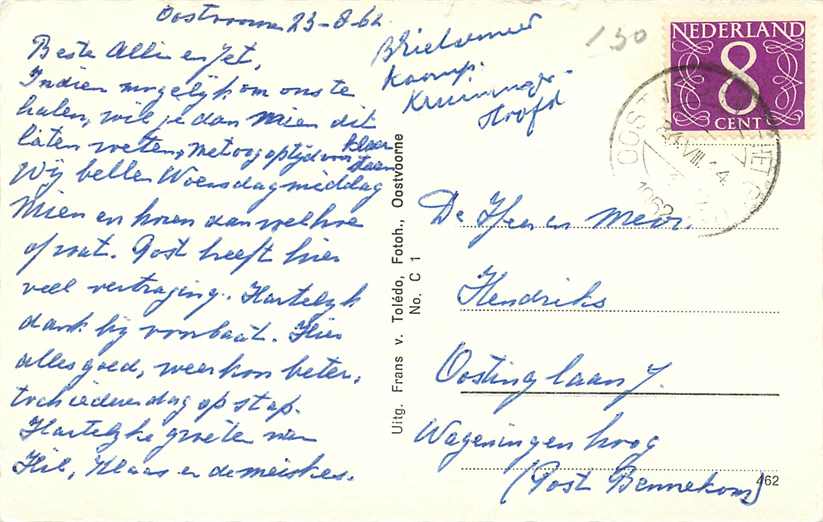 Oostvoorne 23-8-62
Beste Allie en Jet,
Indien mogelijk om ons te
halen, wil je dan Mien dit
laten weten, met oog op tijd van klaar
staan
Wij bellen Woensdagmiddag
Mien en horen dan wel hoe
of wat. Post heeft hier
veel vertraging. Hartelijk
dank bij voorbaat. Hier
alles goed, weer kon beter,
toch iedere dag op stap.
Hartelijke groeten van
Hil, Klaas en de meiskes.
Brielsemeer
Kamp.
Kruiningergors
Hoofd
130
NEDERLAND
8
CENT
OOST
24.VIII.
4
1962
De Heer en Mevr.
Hendriks
Oostinglaan 7.
Wageningen hoog
(Post Bennekom)
Uitg. Frans v. Tolédo, Fotoh., Oostvoorne
No. C 1
462